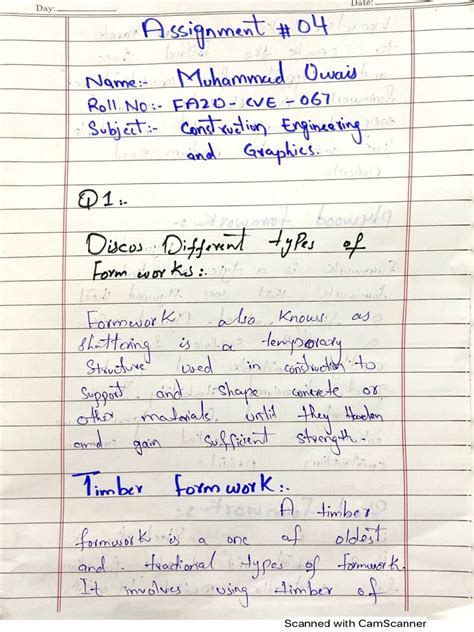 Day: Date:
Assignment #04
Name:- Muhammad Owais
Roll No:- FA20-CVE-067
Subject:- Construction Engineering
and Graphics.
Q1:-
Discos Different types of
Form works:.
Formwork also Knows as
shuttering is a temporary
Structure used in construction to
Support and shape concrete or
other materials until they Harden
and gain Sufficient strength.
Timber formwork:.
A timber
formwork is a one of oldest
and tradional types of formwork.
It involves using timber of
Scanned with CamScanner